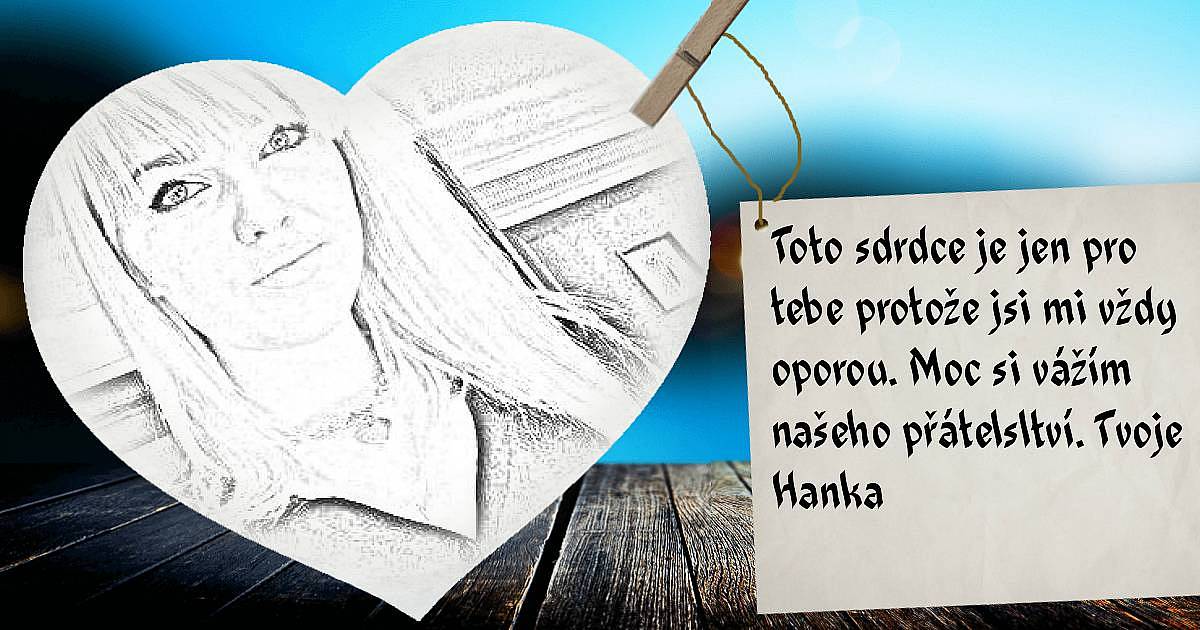 Toto sdrdce je jen pro
tebe protože jsi mi vždy
oporou. Moc si vážím
našeho přátelsltví. Tvoje
Hanka